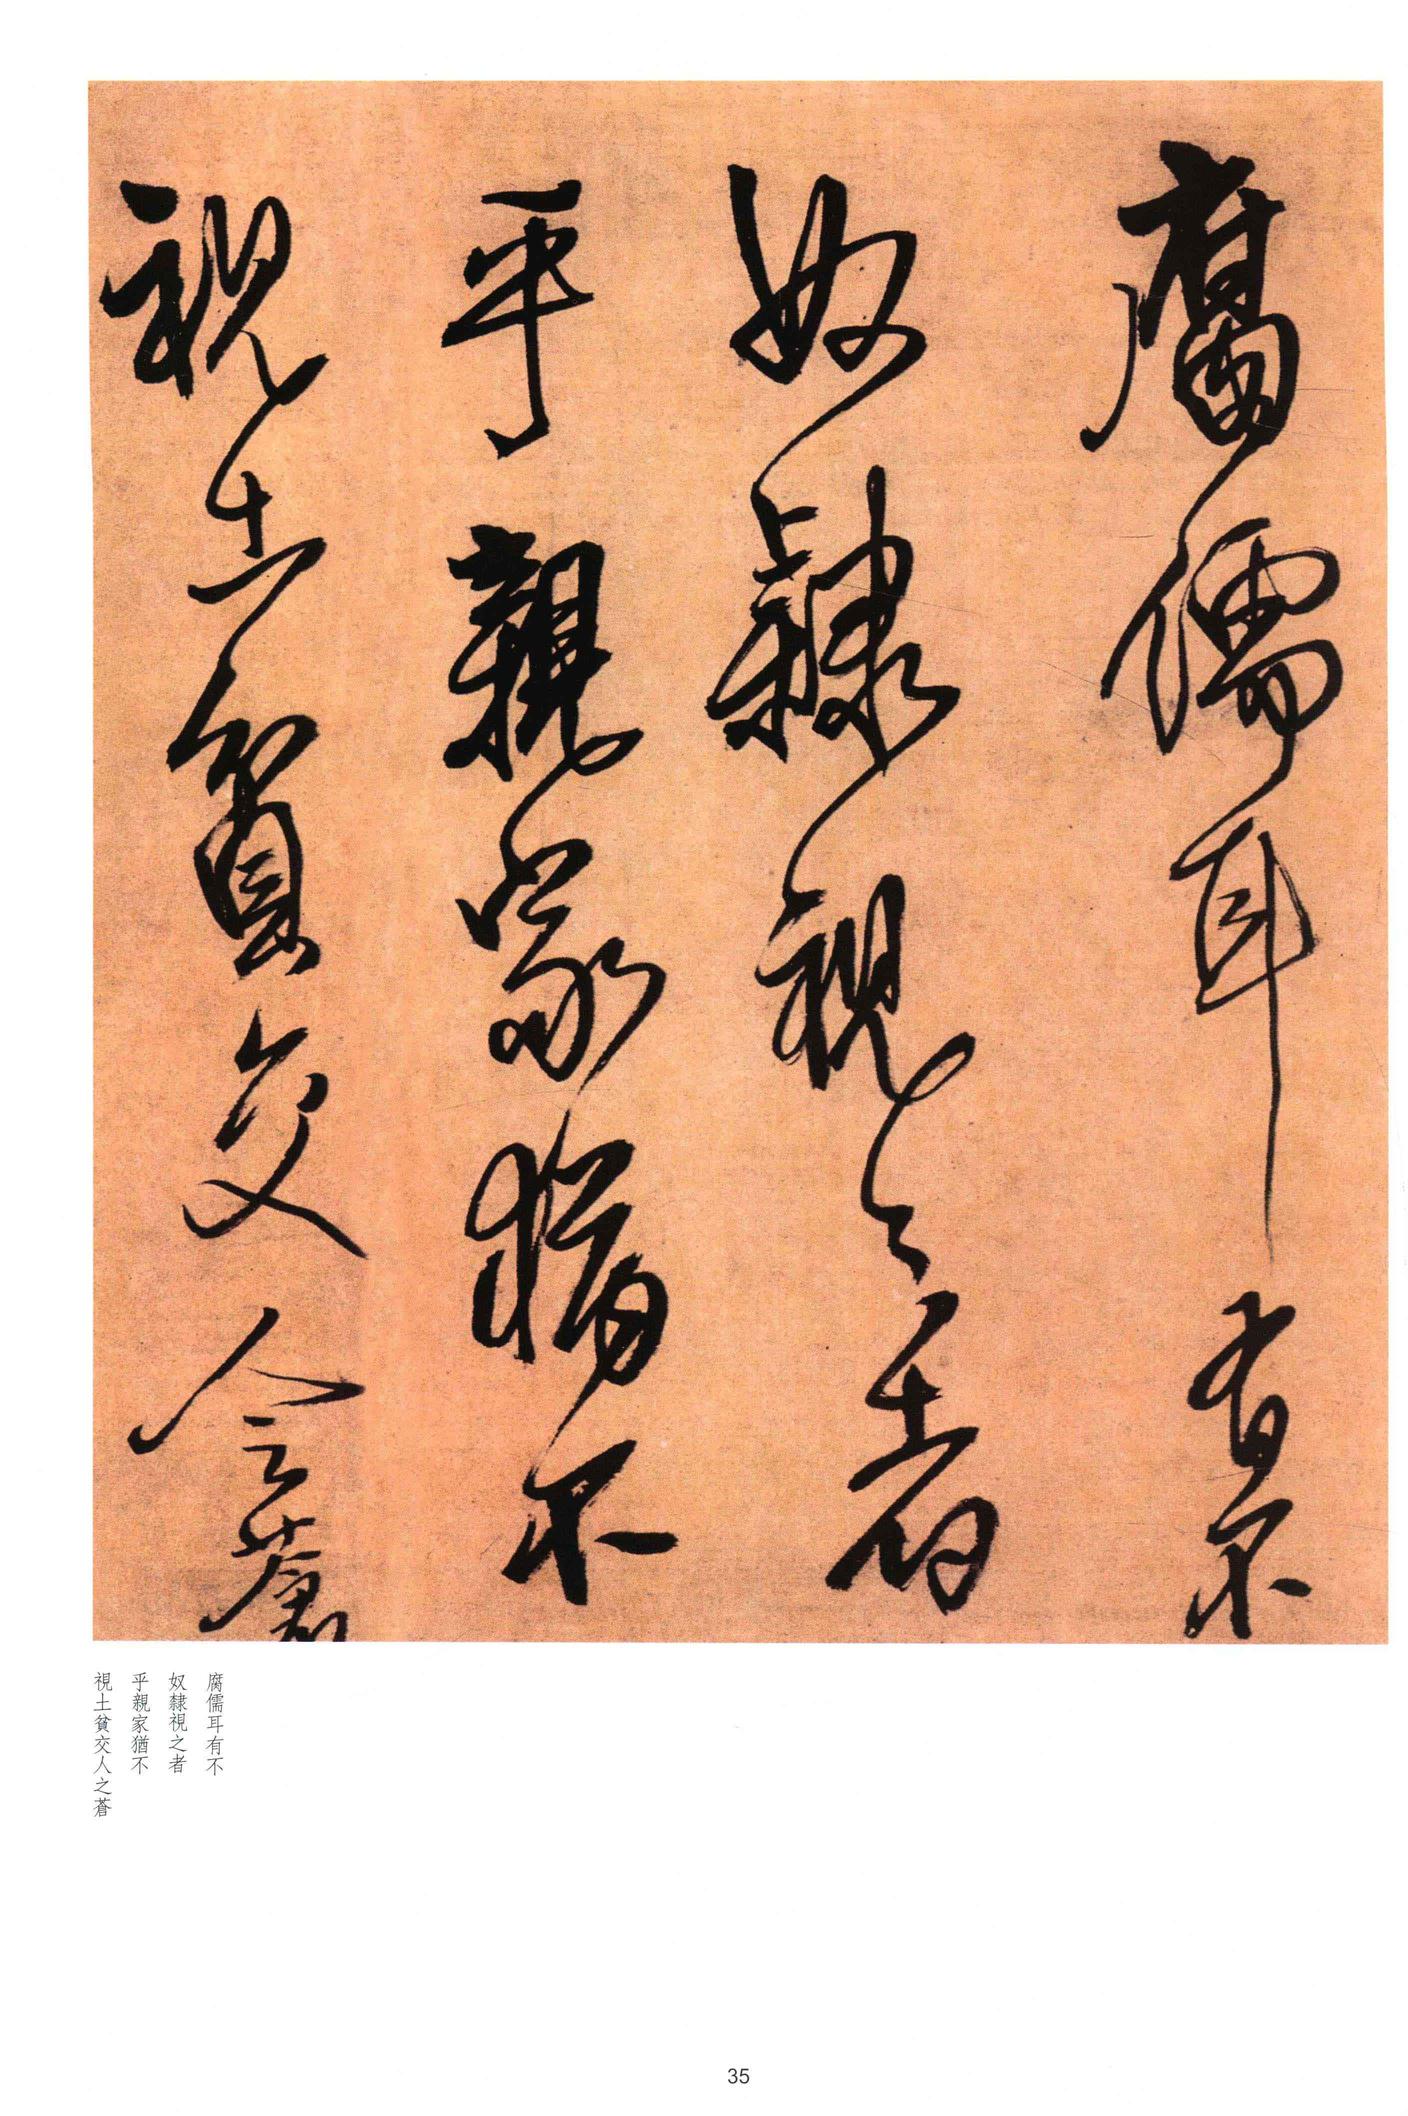 腐儒耳有不
奴隸視之者
乎親家猶不
視土貧交人之蒼
腐儒耳有不
奴隸視之者
乎親家猶不
視土貧交人之蒼
35